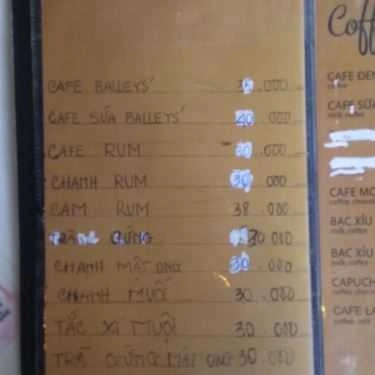 CAFE BALLEYS' 35.000
CAFE SỮA BALLEYS' 40.000
CAFE RUM 30.000
CHANH RUM 30.000
CAM RUM 38.000
GỪNG 30.000
CHANH MẬT ONG 30.000
CHANH MUỐI 30.000
TẮC XÍ MUỘI 30.000
TRÀ GỪNG MẬT ONG 30.000
Coff
CAFE ĐEN
CAFE SỮA
CAFE MO
BẠC XỈU
milk coffee
BẠC XỈU
milk coffee
CAPUCH
CAFE LA